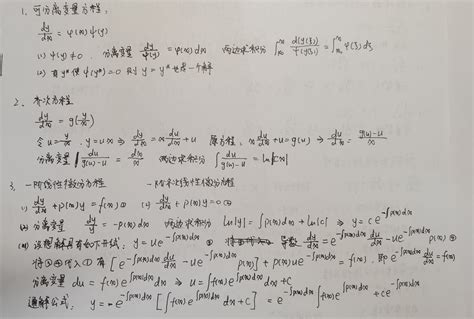 1. 可分离变量方程.
dy/dx = φ(x)ψ(y)
(1) ψ(y)≠0. 分离变量 dy/ψ(y) = φ(x)dx 两边求积分
(2) 有y*使ψ(y*)=0 则 y=y*也是一个解
2. 齐次方程
dy/dx = g(y/x)
令 u=y/x. y=ux ⇒ dy/dx = x du/dx + u 原方程: x du/dx + u = g(u) ⇒ du/dx = g(u)-u/x
分离变量 du/g(u)-u = dx/x 两边求积分 ∫ du/g(u)-u = ln|Cx|
3. 一阶线性微分方程 一阶齐次线性微分方程
(1) dy/dx + p(x)y = f(x) ① (2) dy/dx + p(x)y = 0 ②
分离变量 dy/y = -p(x)dx 两边求积分 ln|y| = ∫p(x)dx + ln|c| ⇒ y = ce^-∫p(x)dx
y = ue^-∫p(x)dx ③ 导数 dy/dx = e^-∫p(x)dx du/dx - ue^-∫p(x)dx p(x) ④
将③④代入①有 [e^-∫p(x)dx du/dx - ue^-∫p(x)dx p(x)] + p(x)ue^-∫p(x)dx = f(x). 即 e^-∫p(x)dx du/dx = f(x)
分离变量 du = f(x)e^∫p(x)dx dx ⇒ u = ∫f(x)e^∫p(x)dx dx + C
通解公式: y = e^-∫p(x)dx [∫f(x)e^∫p(x)dx dx + C] = e^-∫p(x)dx ∫f(x)e^∫p(x)dx dx + ce^-∫p(x)dx